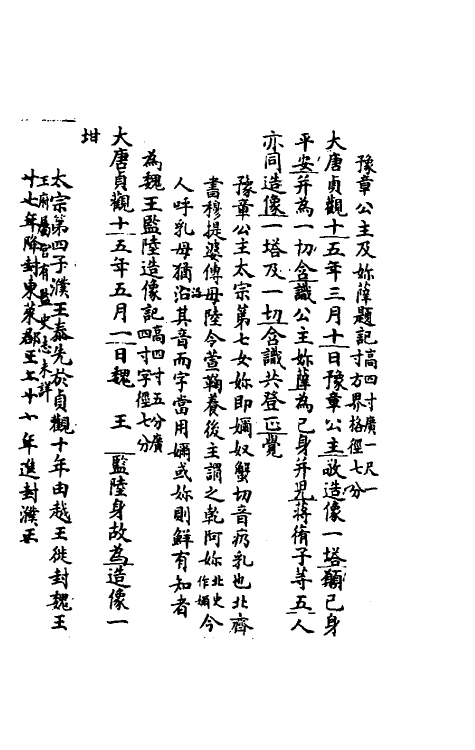 豫章公主及妳薛題記高四寸廣一尺一寸方界格徑七分
大唐貞觀十五年三月十日豫章公主敬造像一塔願己身
平安并為一切含識公主妳薛為己身并兒蔣脩子等五人
亦同造像一塔及一切含識共登正覺
豫章公主太宗第七女妳即嬭奴蟹切音疓乳也北齊
書穆提婆傅母陸令萱鞠養後主謂之乾阿妳北史作嬭今
人呼乳母猶沿沿其音而字當用嬭或妳則鮮有知者
為魏王監陸造像記高四寸五分廣四寸字徑七分
大唐貞觀十五年五月一日魏　王　監陸身故為造像一
坩
太宗第四子濮王泰先於貞觀十年由越王徙封魏王
王府屬官有監史志未詳
廿七年降封東萊郡王 廿一年進封濮王